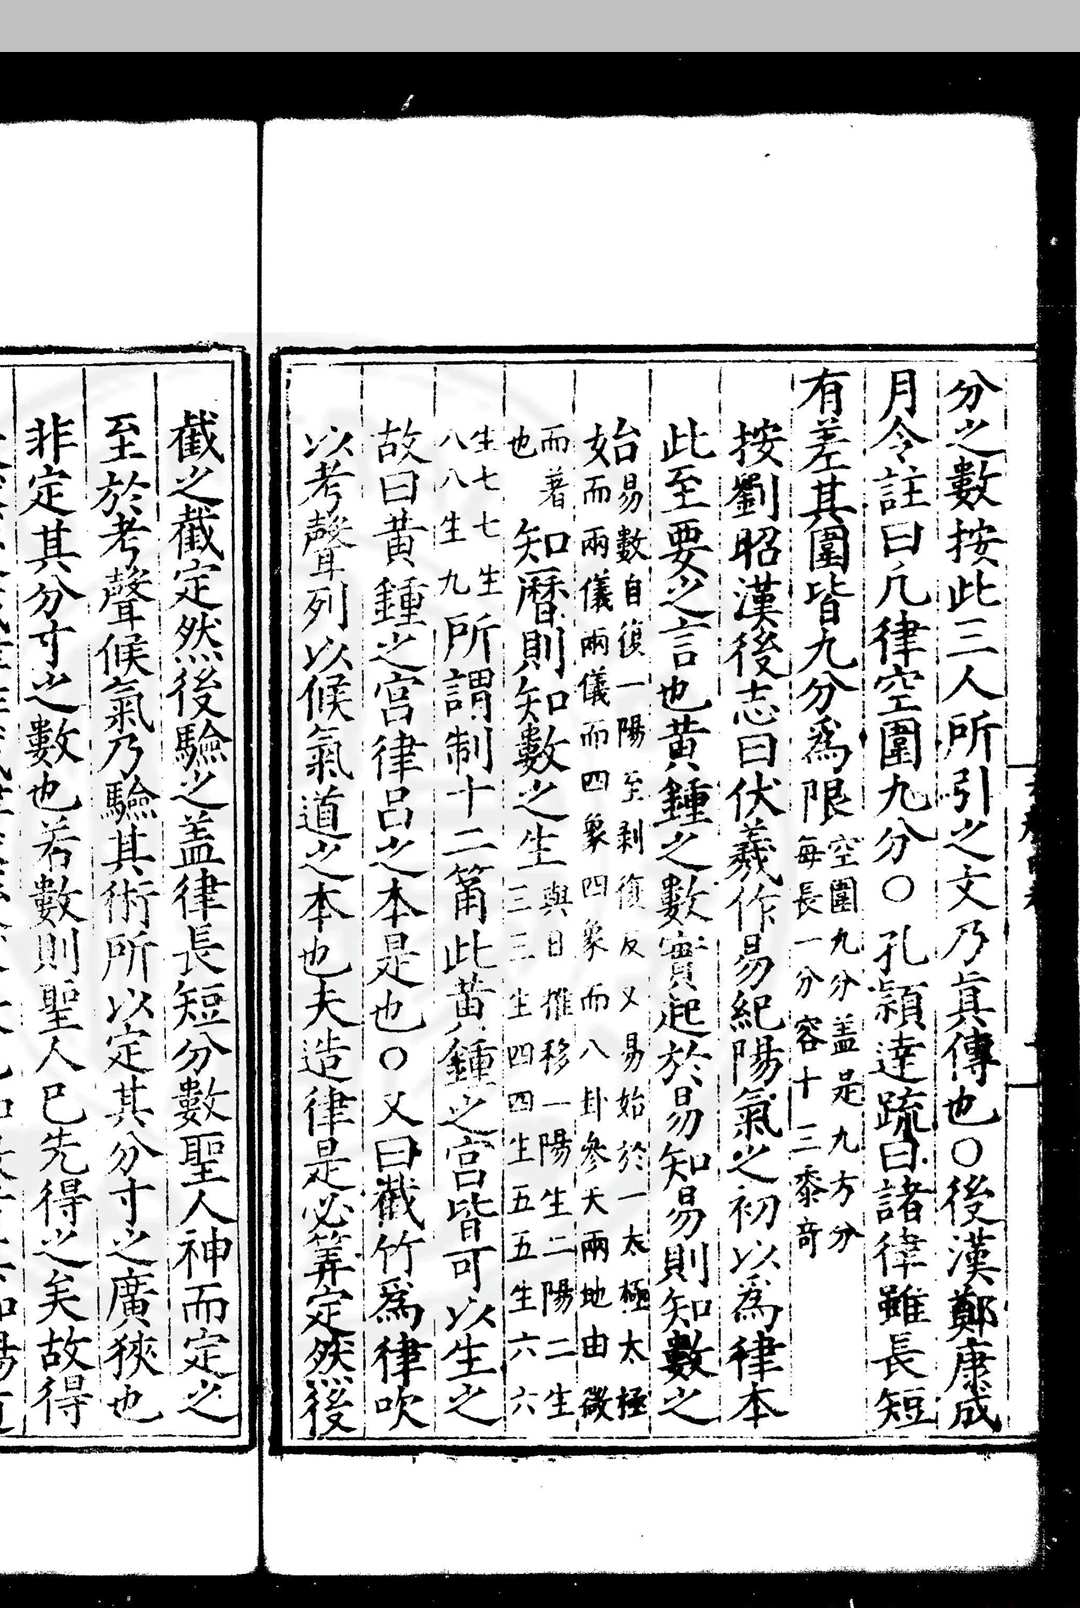 分之數按此三人所引之文乃眞傳也○後漢鄭康成
月令註曰凡律空圍九分○孔穎達疏曰諸律雖長短
有差其圍皆九分爲限空圍九分盖是九方分
每長一分容十三黍竒
按劉昭漢後志曰伏羲作易紀陽氣之初以爲律本
此至要之言也黄鍾之數實起於易知易則知數之
始易數自復一陽至剥復反又易始於一太極太極
而兩儀兩儀而四象四象而八卦參天兩地由微
而著
也知曆則知數之生與日推移一陽生二陽二生
三三生四四生五五生六六
生七七生
八八生九所謂制十二筩此黄鍾之宫皆可以生之
故曰黄鍾之宫律吕之本是也○又曰截竹爲律吹
以考聲列以候氣道之本也夫造律是必筭定然後
截之截定然後驗之盖律長短分數聖人神而定之
至於考聲候氣乃驗其術所以定其分寸之廣狹也
非定其分寸之數也若數則聖人已先得之矣故得